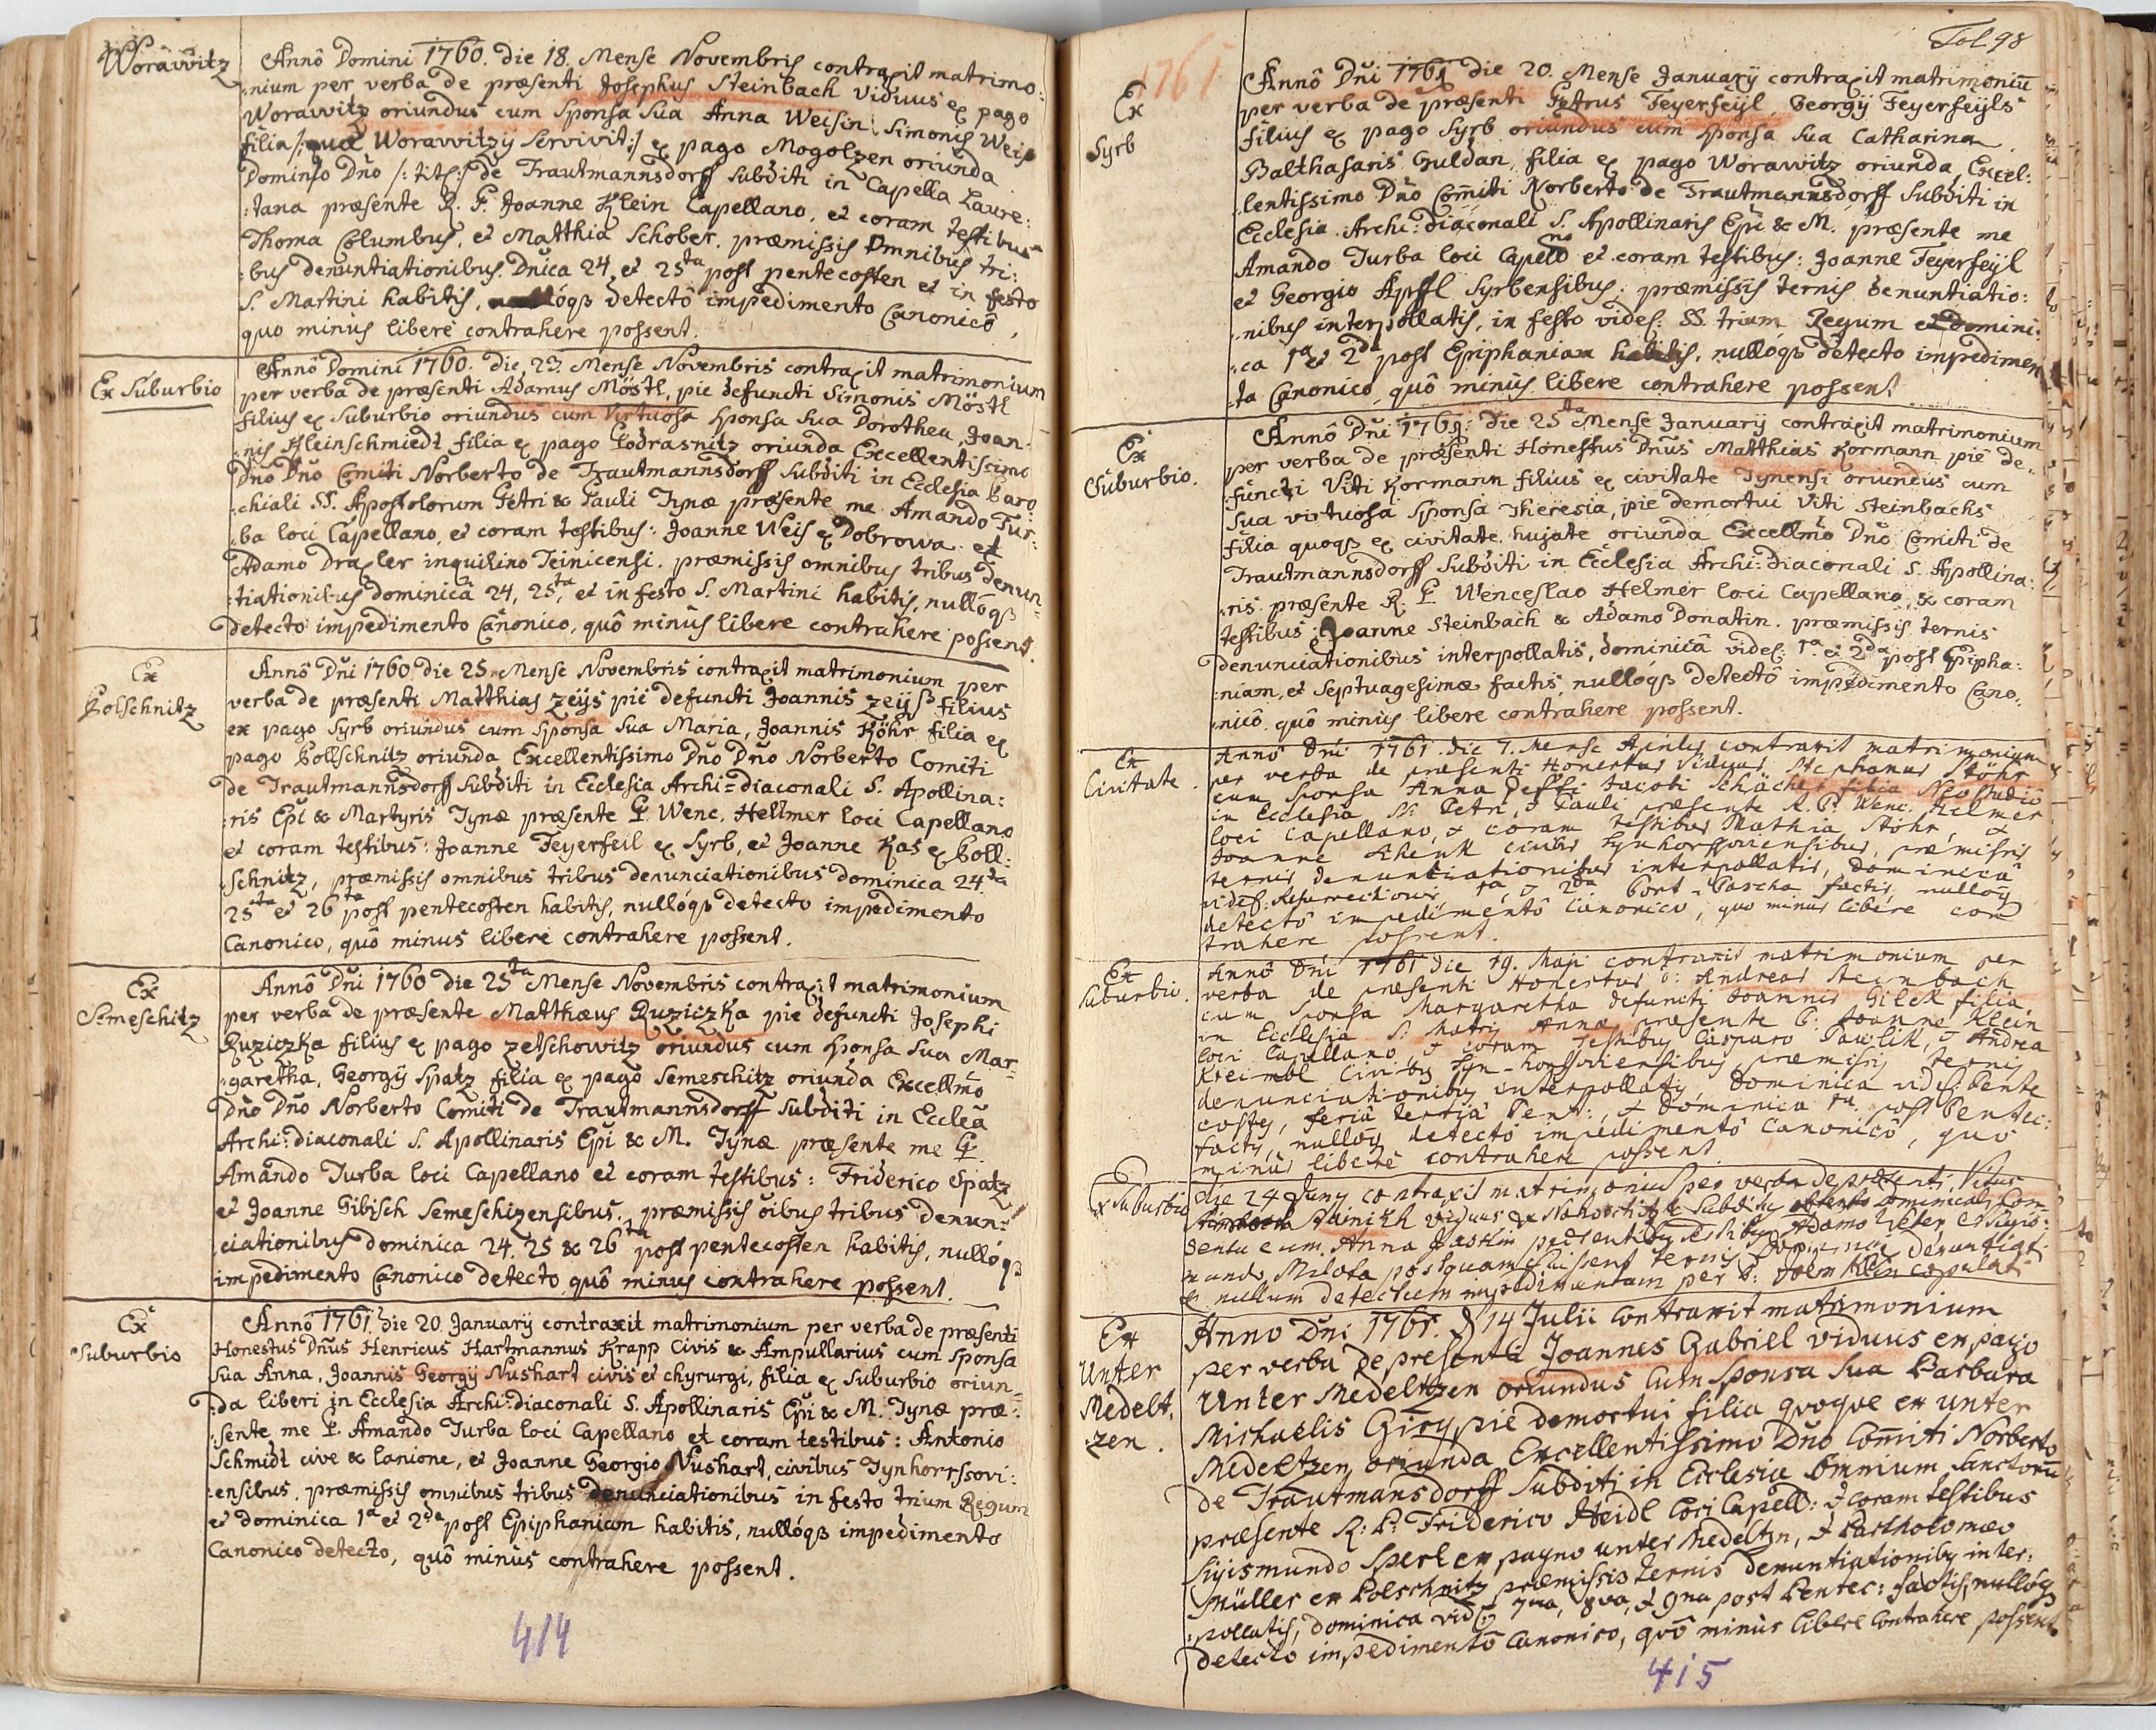 Worawitz
Annô Domini 1760. die 18. Mense Novembris contraxit matrimo:
:nium per verba de præsenti Josephus Steinbach viduus ex pago
Worawitz oriundus cum Sponsa Sua Anna Weisin Simonis Weis
filia /:quæ Worawitzij Servivit:/ ex pago Mogolzen oriunda
Domino Dño /:titl:/ de Trautmannsdorff Subditi in Capella Laure:
:tana præsente R. P. Joanne Klein Capellano, et coram testibus
Thoma Columbus, et Matthia Schober, præmissis omnibus tri:
:bus denuntiationibus Dñica 24. et 25ta post pentecosten et in festo
S. Martini habitis, detectô impedimento Canonicô,
quo minus liberè contrahere possent.
Ex Suburbio
Annô Domini 1760. die 23. Mense Novembris contraxit matrimonium
per verba de præsenti Adamus Möstl, pie defuncti Simonis Möstl
filius ex Suburbio oriundus cum Virtuosa Sponsa Sua Dorothea, Joan:
:nis Kleinschmiedt filia ex pago Podrasnitz oriunda Excellentissimo
Dño Dño Comiti Norberto de Trautmannsdorff Subditi in Ecclesia Paro
:chiali SS. Apostolorum Petri & Pauli Tynæ præsente me Amando Tur:
:ba loci Capellano, et coram testibus: Joanne Weis ex Dobrowa et
Adamo Draxler inquilino Teinicensi. præmissis omnibus tribus denun:
:tiationibus dominicâ 24, 25ta, et in festo S. Martini habitis, nullóqz
detecto impedimento Canonico, quô minus libere contrahere possent.
Ex
Polschnitz
Annô Dñi 1760 die 25. Mense Novembris contraxit matrimonium per
verba de præsenti Matthias Zeijs piè defuncti Joannis Zeijß filius
ex pago Syrb oriundus cum Sponsa Sua Maria, Joannis Köhr filia ex
pago Pollschnitz oriunda Excellentissimo Dño Dño Norberto Comiti
de Trautmannsdorff Subditi in Ecclesia Archi-diaconali S. Apollina:
:ris Epi & Martyris Tynæ præsente P. Wenc. Hellmer loci Capellano
et coram testibus: Joanne Feyerfeil ex Syrb, et Joanne Kas ex Poll:
:schnitz, præmissis omnibus tribus denunciationibus dominica 24ta
25ta et 26ta post pentecosten habitis, nullóqz detecto impedimento
Canonico, quô minus liberè contrahere possent.
Ex
Semeschitz
Annô Dñi 1760 die 25ta Mense Novembris contraxit matrimonium
per verba de præsente Matthæus Ruziczka pie defuncti Josephi
Ruziczka filius ex pago Zetschowitz oriundus cum Sponsa Sua Mar:
:garetha, Georgij Spatz filia ex pago Semeschitz oriunda Excellmo
Dño Dño Norberto Comiti de Trautmannsdorff Subditi in Ecclea
Archi:diaconali S. Apollinaris Epi & M. Tynæ præsente me P.
Amando Turba loci Capellano et coram testibus: Friderico Spatz
et Joanne Gibisch Semeschizensibus. præmissis oibus tribus denun:
ciationibus dominica 24. 25 & 26ta post pentecosten habitis, nullóqz
impedimento Canonico detecto quô minus contrahere possent.
Ex
Suburbio
Annô 1761. die 20. Januarij contraxit matrimonium per verba de præsenti
Honestus Dñus Henricus Hartmannus Krapp Civis & Ampullarius cum Sponsa
Sua Anna, Joannis Georgij Nushart civis et chyrurgi, filia ex Suburbio oriun:
:da liberi in Ecclesia Archi:diaconali S. Apollinaris Epi & M. Tynæ præ:
:sente me P. Amando Turba loci Capellano et coram testibus: Antonio
Schmidt cive & lanione, et Joanne Georgio Nushart, civibus Tynhorssovi:
:ensibus. præmissis omnibus tribus denunciationibus in festo trium Regum
et dominica 1a et 2da post Epiphaniam habitis, nullóqz impedimento
Canonico detecto, quô minus contrahere possent.
414
Fol. 98
1761
Ex
Syrb
Annô Dñi 1761 die 20. Mense Januarij contraxit matrimoniu
per verba de præsenti Petrus Feyerfeijl, Georgij Feyerfeijls
filius ex pago Syrb oriundus cum Sponsa Sua Catharina
Balthasaris Guldan filia ex pago Worawitz oriunda, Excel:
:lentissimo Dño Comiti Norberto de Trautmannsdorff Subditi in
Ecclesia Archi:diaconali S. Apollinaris Epi & M. præsente me
Amando Turba loci Capello et coram testibus: Joanne Feyerfeijl
et Georgio Apffl Syrbensibus. præmissis ternis denuntiatio:
:nibus interpollatis, in festo videl: SS. trium Regum et domini:
:ca 1a et 2da post Epiphaniam habitis, nullóqz detecto impedimen
:to Canonico, quô minus libere contrahere possent
Ex
Suburbio.
Annô Dñi 1761. die 25ta Mense Januarij contraxit matrimonium
per verba de præsenti Honestus Dñus Matthias Kormann piè de:
:functi Viti Kormann filius ex civitate Tynensi oriundus cum
Sua virtuosa Sponsa Theresia, pie demortui Viti Steinbachs
filia quoqz ex civitate hujate oriunda Excellmo Dño Comiti de
Trautmannsdorff Subditi in Ecclesia Archi:diaconali S. Apollina:
:ris præsente R. P. Wenceslao Helmer loci Capellano, & coram
testibus Joanne Steinbach & Adamo Donatin. præmissis ternis
denunciationibus interpollatis, dominicâ videl: 1a et 2da post Epipha:
:niam, et Septuagesimæ factis, nullóqz detectô impedimento Cano:
:nicô quô minus libere contrahere possent.
Ex
Civitate.
Annô Dñi 1761. die 7. Mense Aprilis contraxit matrimonium
per verba de præsenti Honestus Viduus Stephanus Stöhr
cum Sponsa Anna Jacobi Schächer filia
in Ecclesia SS. Petri, & Pauli præsente R. P. Wenc. Helmer
loci Capellano, & coram testibus Mathia Stöhr, &
Joanne Schenk civibus Tynhorssoviensibus, præmissis
ternis denuntiationibus interpollatis, Dominicâ
videl. Resurrectionis, 1a & 2da Post Pascha factis, nulloqz
detectô impedimentô Canonico, quo minus libere con
trahere possent.
Ex
Suburbio.
Annô Dñi 1761 die 19. Maji contraxit matrimonium per
verba de præsenti Honestus D: Andreas Steinbach
cum Sponsa Margaretha defuncti Joannis Gilek filia
in Ecclesia S: Matris Annæ præsente P: Joanne Klein
loci Capellano, & coram testibus Casparo Pawlik, & Andrea
Kreimbl Civibus Tyn-horssoviensibus præmissis ternis
denunciationibus interpollatis Dominica videl: Pente
costes, feriâ tertiâ Pent:, & Dominica 1a post Pentec:
factis, nulloqz detectô impedimentô Canonicô, quô
minus liberè contrahere possent
Ex Suburbio
Die 24 Junij contraxit matrimonium per verba de præsenti Vitus
viduus ex Subditus
cum Anna præsentibus testibus Adamo
postquam fuissent ternis
& nullum detectum impedimentum per P: Joem Klein copulati
Ex
Unter
Medelt.
zen.
Anno Dñi 1761. d 14 Julii contraxit matrimonium
per verba de præsenti Joannes Gabriel viduus ex pago
Unter Medeltzen oriundus cum Sponsa Sua Barbara
Michaelis Giry pie demortui filia quoque ex unter
Medeltzen oriunda, Excellentissimo Dño Comiti Norberto
de Trautmansdorff Subditi in Ecclesia Omnium Sanctorū
præsente R: P: Friderico Heidl loci Capell: & coram testibus
Sigismundo Sperl ex pagno unter Medeltzn, & Bartholomæo
Müller ex Polschnitz præmissis ternis denuntiationibus inter:
:pollatis, Dominica vid: 7ma, 8va, & 9na post Pentec: factis, nullóqz
detecto impedimentô Canonico, quô minùs libere contrahere possent.
415